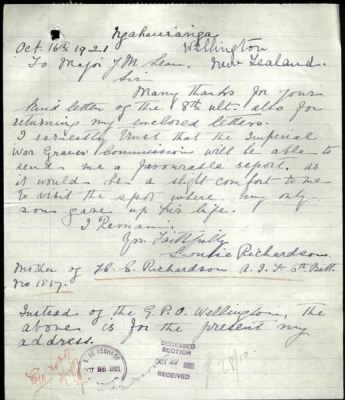 Ngahauranga
Oct. 16th 1921 Wellington
To Major J M Lean, New Zealand.
Sir
Many thanks for yours
kind letter of the 8th ult. also for
returning my enclosed letters.
I earnestly trust that the Imperial
War Graves Commission will be able to
send me a favourable report. as
it would be a slight comfort to me
to visit the spot where my only
son gave up his life.
I Remain
Yrs. Faithfully
Louise Richardson.
Mother of H. E. Richardson A. I. F 6th Batt.
No 1817.
Instead of the G. P. O Wellington, the
above is for the present my
address.
DECEASED
SECTION
RECEIVED